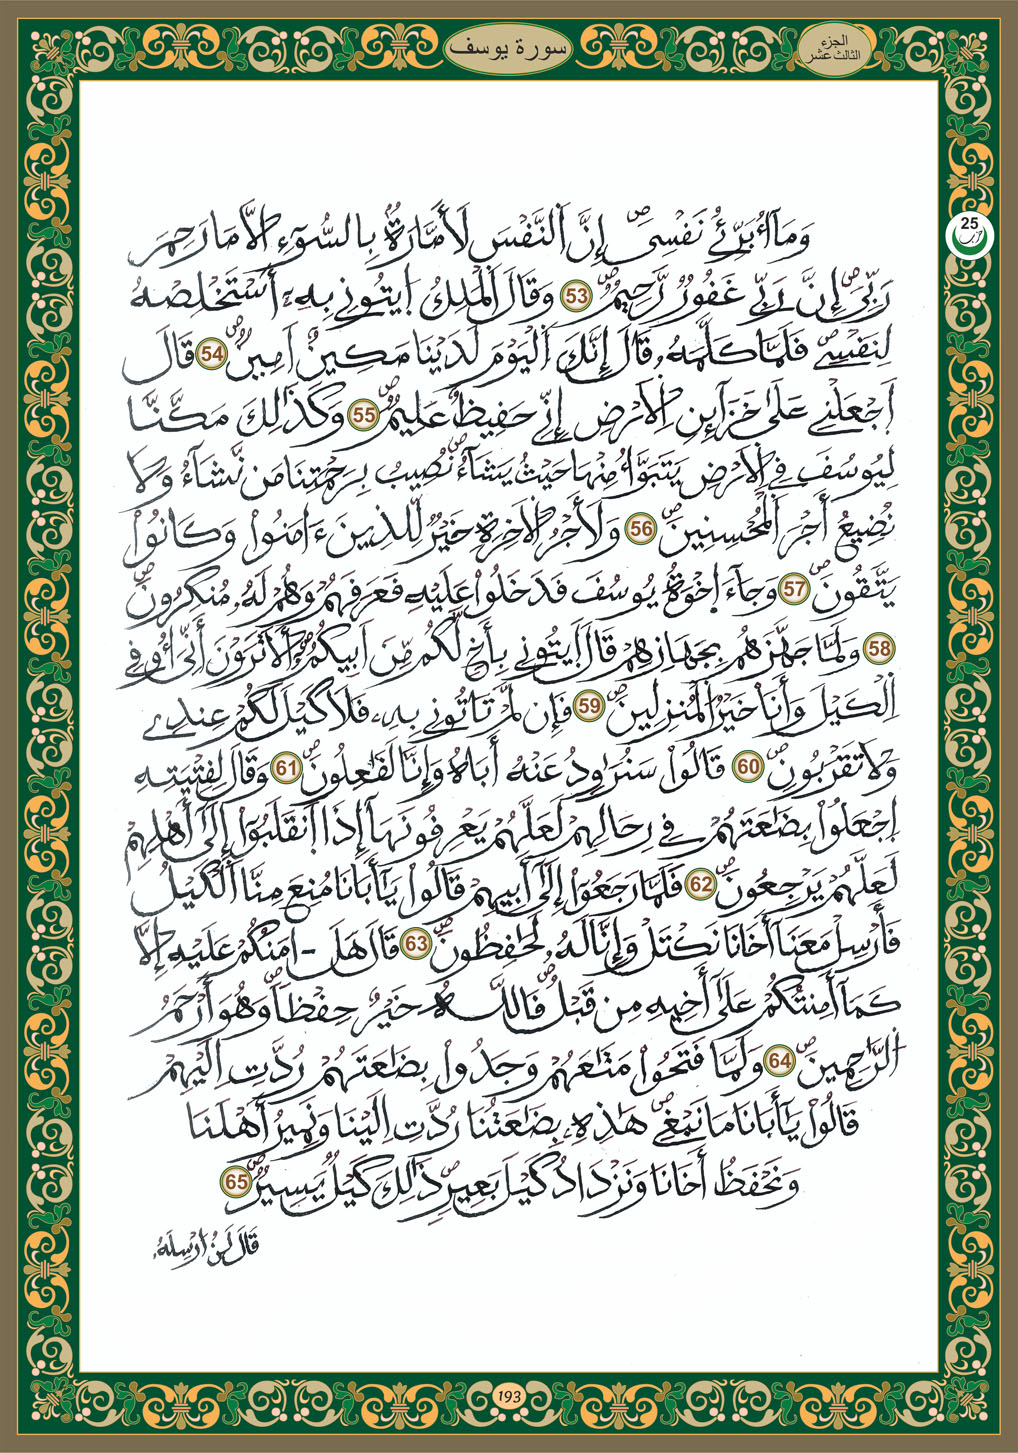 سورة يوسف
الجزء
الثالث عشر
25
حزب
وَمَآ أُبَرِّئُ نَفْسِيَ إِنَّ اَلنَّفْسَ لَأَمَّارَةُۢ بِالسُّوٓءِ اِلَّا مَا رَحِمَ
رَبِّيَ إِنَّ رَبِّي غَفُورٌ رَّحِيمٌ 53 وَقَالَ اَلْمَلِكُ اُيتُونِي بِهِۦٓ أَسْتَخْلِصْهُ
لِنَفْسِي فَلَمَّا كَلَّمَهُۥ قَالَ إِنَّكَ اَلْيَوْمَ لَدَيْنَا مَكِينٌ اَمِينٌ 54 قَالَ
اَجْعَلْنِي عَلَىٰ خَزَآئِنِ اِلَارْضِ إِنِّي حَفِيظٌ عَلِيمٌ 55 وَكَذَٰلِكَ مَكَّنَّا
لِيُوسُفَ فِي اِلَارْضِ يَتَبَوَّأُ مِنْهَا حَيْثُ يَشَآءُ نُصِيبُ بِرَحْمَتِنَا مَن نَّشَآءُ وَلَا
نُضِيعُ أَجْرَ اَلْمُحْسِنِينَ 56 وَلَأَجْرُ اُلَاخِرَةِ خَيْرٌ لِّلذِينَ ءَامَنُواْ وَكَانُواْ
يَتَّقُونَ 57 وَجَآءَ إِخْوَةُ يُوسُفَ فَدَخَلُواْ عَلَيْهِ فَعَرَفَهُمْ وَهُمْ لَهُۥ مُنكِرُونَ
58 وَلَمَّا جَهَّزَهُم بِجَهَازِهِمْ قَالَ اَيتُونِي بِأَخٍ لَّكُم مِّنَ اَبِيكُمُۥٓ أَلَا تَرَوْنَ أَنِّيَ أُوفِي
اِلْكَيْلَ وَأَنَا خَيْرُ اُلْمُنزِلِينَ 59 فَإِن لَّمْ تَاتُونِي بِهِۦ فَلَا كَيْلَ لَكُمْ عِندِي
وَلَا تَقْرَبُونِ 60 قَالُواْ سَنُرَٰوِدُ عَنْهُ أَبَاهُ وَإِنَّا لَفَٰعِلُونَ 61 وَقَالَ لِفِتْيَتِهِ
اِجْعَلُواْ بِضَٰعَتَهُمْ فِي رِحَالِهِمْ لَعَلَّهُمْ يَعْرِفُونَهَآ إِذَا اَنقَلَبُوٓاْ إِلَىٰٓ أَهْلِهِمْ
لَعَلَّهُمْ يَرْجِعُونَ 62 فَلَمَّا رَجَعُوٓاْ إِلَىٰٓ أَبِيهِمْ قَالُواْ يَٰٓأَبَانَا مُنِعَ مِنَّا اَلْكَيْلُ
فَأَرْسِلْ مَعَنَآ أَخَانَا نَكْتَلْ وَإِنَّا لَهُۥ لَحَٰفِظُونَ 63 قَالَ هَلَ اٰمَنُكُمْ عَلَيْهِ إِلَّا
كَمَآ أَمِنتُكُمْ عَلَىٰٓ أَخِيهِ مِن قَبْلُ فَاللَّهُ خَيْرٌ حِفْظاً وَهُوَ أَرْحَمُ
اُلرَّٰحِمِينَ 64 وَلَمَّا فَتَحُواْ مَتَٰعَهُمْ وَجَدُواْ بِضَٰعَتَهُمْ رُدَّتِ اِلَيْهِمْ
قَالُواْ يَٰٓأَبَانَا مَا نَبْغِي هَٰذِهِۦ بِضَٰعَتُنَا رُدَّتِ اِلَيْنَا وَنَمِيرُ أَهْلَنَا
وَنَحْفَظُ أَخَانَا وَنَزْدَادُ كَيْلَ بَعِيرٍ ذَٰلِكَ كَيْلٌ يَسِيرٌ 65
قَالَ لَنُ ارْسِلَهُۥ
193